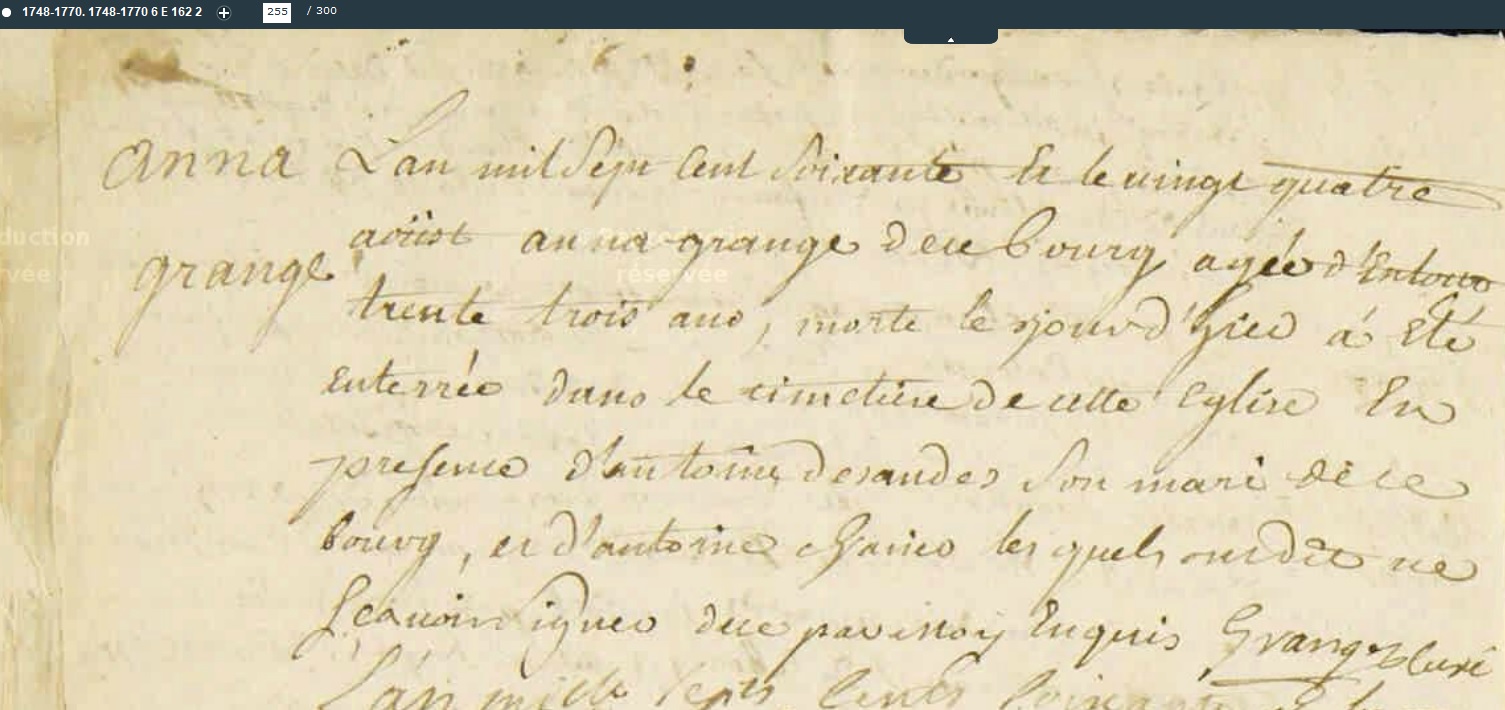 1748-1770. 1748-1770 6 E 162 2 255 / 300
anna Lan mil Sept Cent Soixante Et le vingt quatre
aoüst anna grange de ce bourg agée d'Environ
grange
trente trois ans, morte le jour d'hier a été
Enterrée dans le cimetière de cette Eglise En
presence d'antoine desandes Son mari de ce
bourg, et d'antoine les quels ont dit ne
Sçavoir Signer de ce par moy Enquis Grange Curé
Lan mille Sept Cents Soixante
duction
vée
réservée